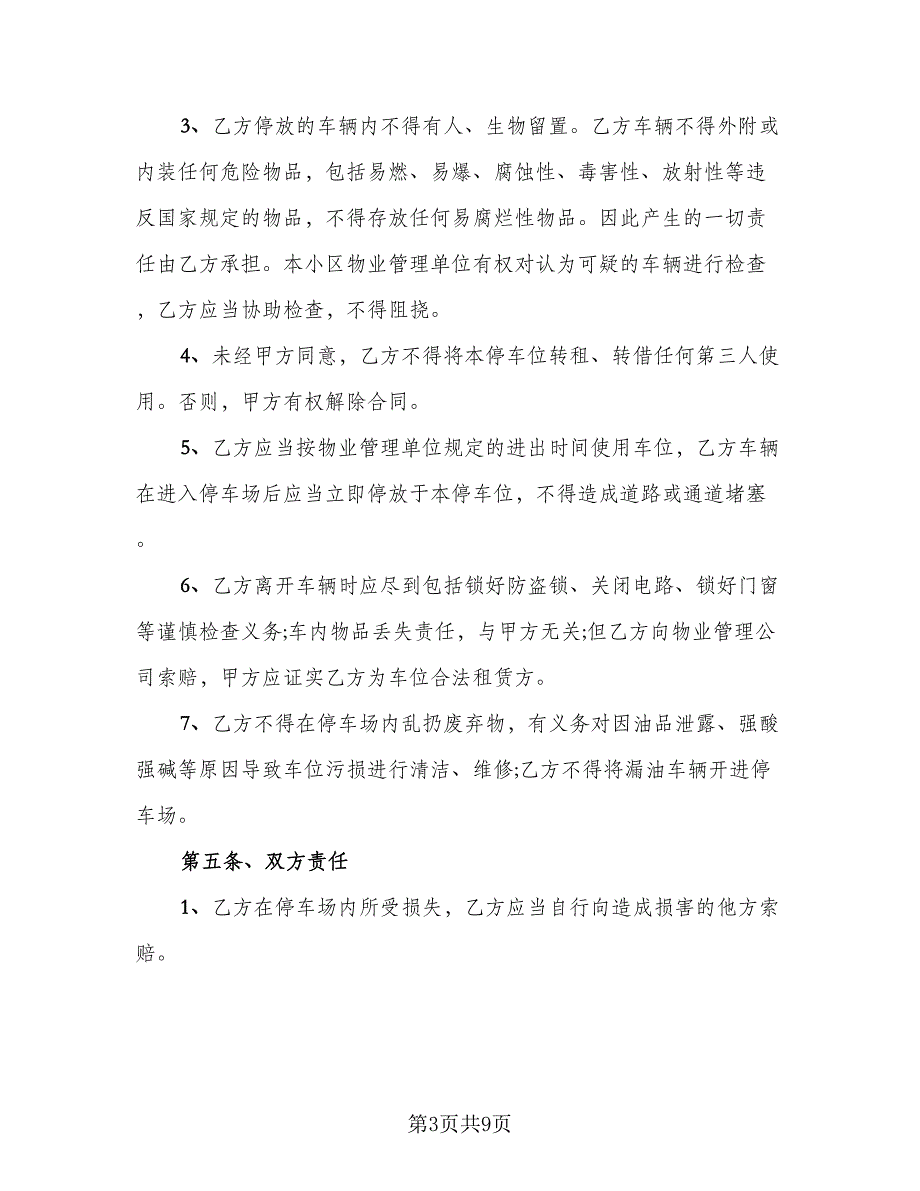 3、乙方停放的车辆内不得有人、生物留置。乙方车辆不得外附或
内装任何危险物品，包括易燃、易爆、腐蚀性、毒害性、放射性等违
反国家规定的物品，不得存放任何易腐烂性物品。因此产生的一切责
任由乙方承担。本小区物业管理单位有权对认为可疑的车辆进行检查
，乙方应当协助检查，不得阻挠。
4、未经甲方同意，乙方不得将本停车位转租、转借任何第三人使
用。否则，甲方有权解除合同。
5、乙方应当按物业管理单位规定的进出时间使用车位，乙方车辆
在进入停车场后应当立即停放于本停车位，不得造成道路或通道堵塞
。
6、乙方离开车辆时应尽到包括锁好防盗锁、关闭电路、锁好门窗
等谨慎检查义务;车内物品丢失责任，与甲方无关;但乙方向物业管理公
司索赔，甲方应证实乙方为车位合法租赁方。
7、乙方不得在停车场内乱扔废弃物，有义务对因油品泄露、强酸
强碱等原因导致车位污损进行清洁、维修;乙方不得将漏油车辆开进停
车场。
第五条、双方责任
1、乙方在停车场内所受损失，乙方应当自行向造成损害的他方索
赔。
第3页共9页